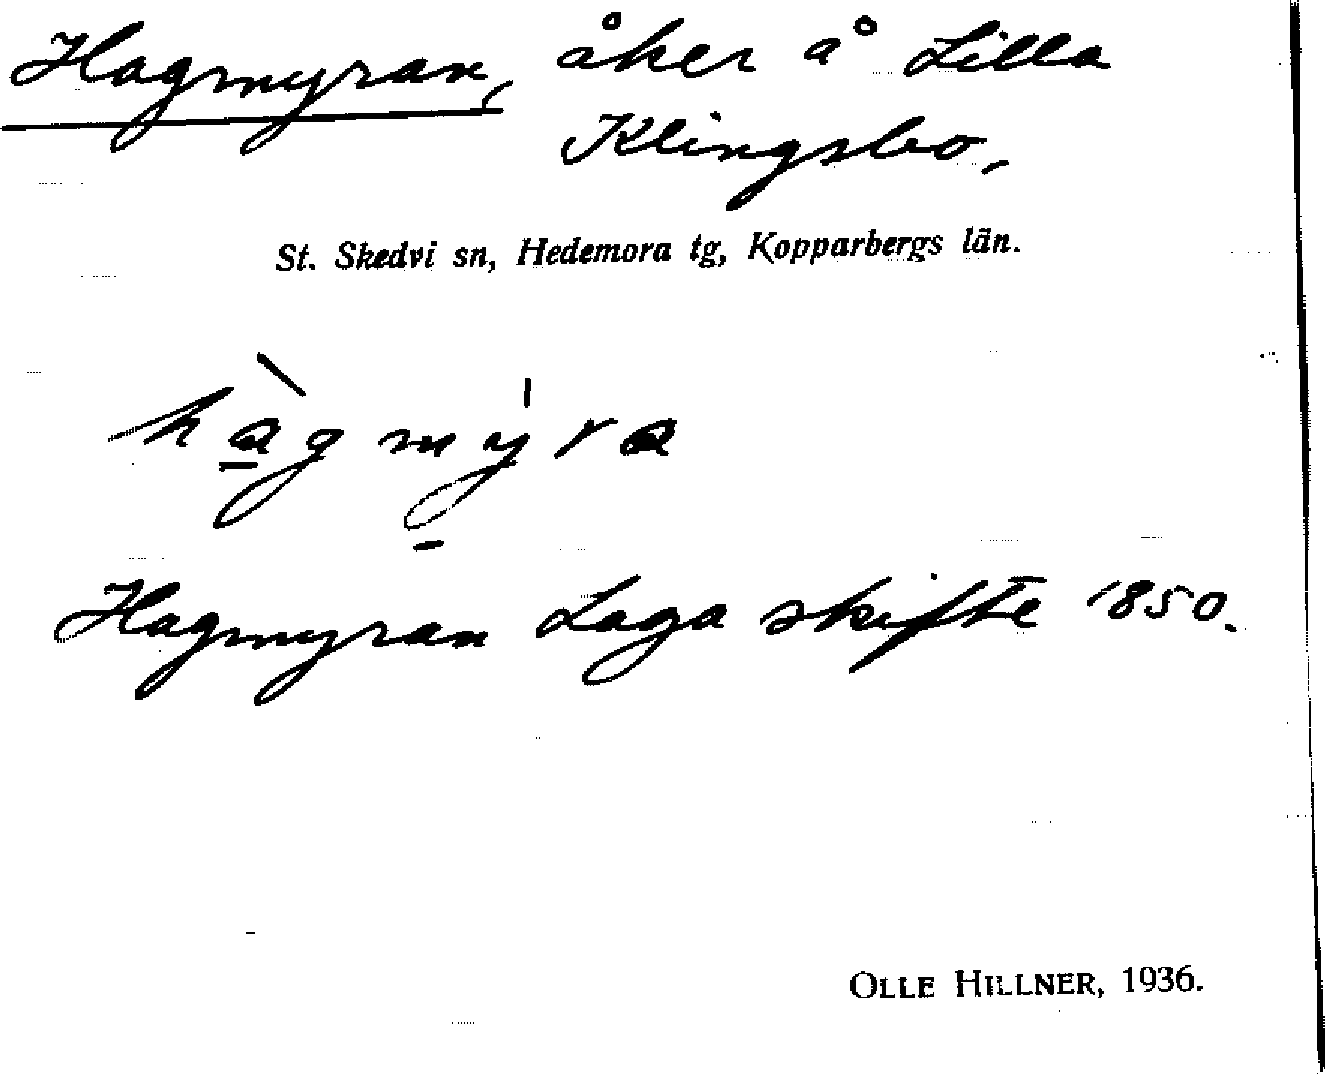 Hagmyran, åker å Lilla
Klingsbo,
St. Skedvi sn, Hedemora tg, Kopparbergs län.
hàgmýra
Hagmyran Laga skifte 1850.
OLLE HILLNER, 1936.